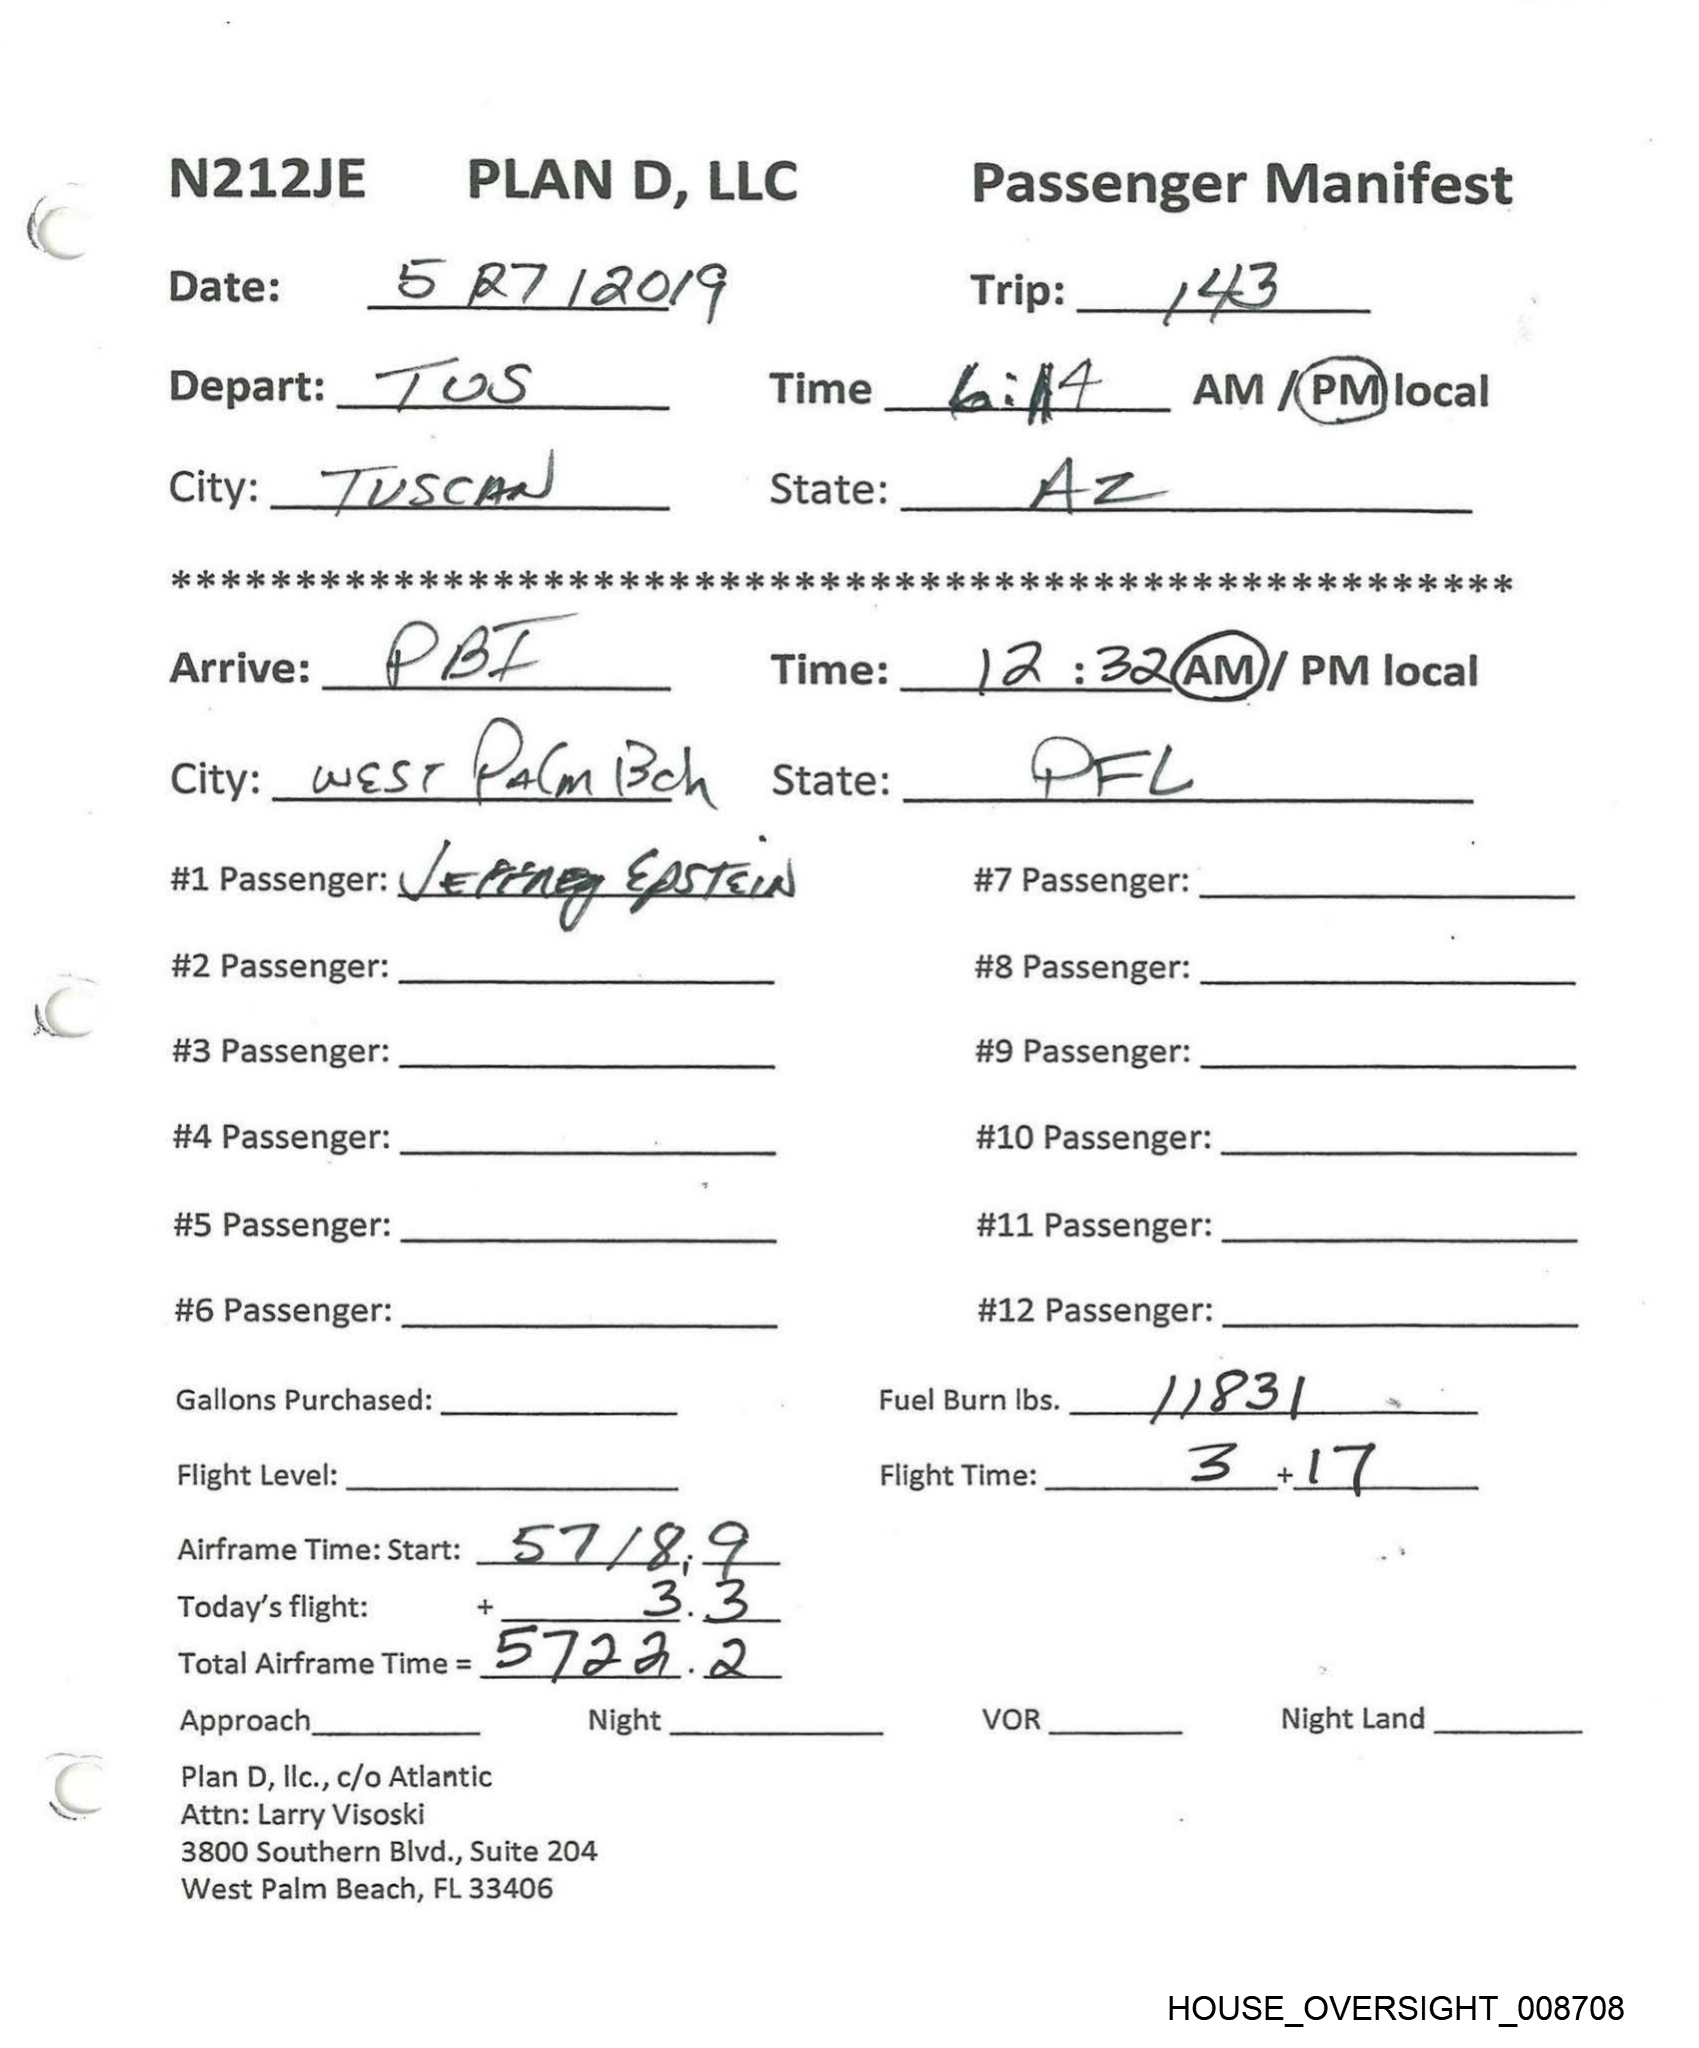 N212JE PLAN D, LLC Passenger Manifest
Date: 5/27/2019 Trip: 143
Depart: TUS Time 6:14 AM / PM local
City: TUSCAN State: AZ
******************************************************
Arrive: PBI Time: 12:32 AM / PM local
City: WEST PALM Bch State: FL
#1 Passenger: JEFFREY EPSTEIN #7 Passenger:
#2 Passenger: #8 Passenger:
#3 Passenger: #9 Passenger:
#4 Passenger: #10 Passenger:
#5 Passenger: #11 Passenger:
#6 Passenger: #12 Passenger:
Gallons Purchased: Fuel Burn lbs. 11831
Flight Level: Flight Time: 3 + 17
Airframe Time: Start: 5718.9
Today's flight: + 3.3
Total Airframe Time = 5722.2
Approach Night VOR Night Land
Plan D, llc., c/o Atlantic
Attn: Larry Visoski
3800 Southern Blvd., Suite 204
West Palm Beach, FL 33406
HOUSE_OVERSIGHT_008708